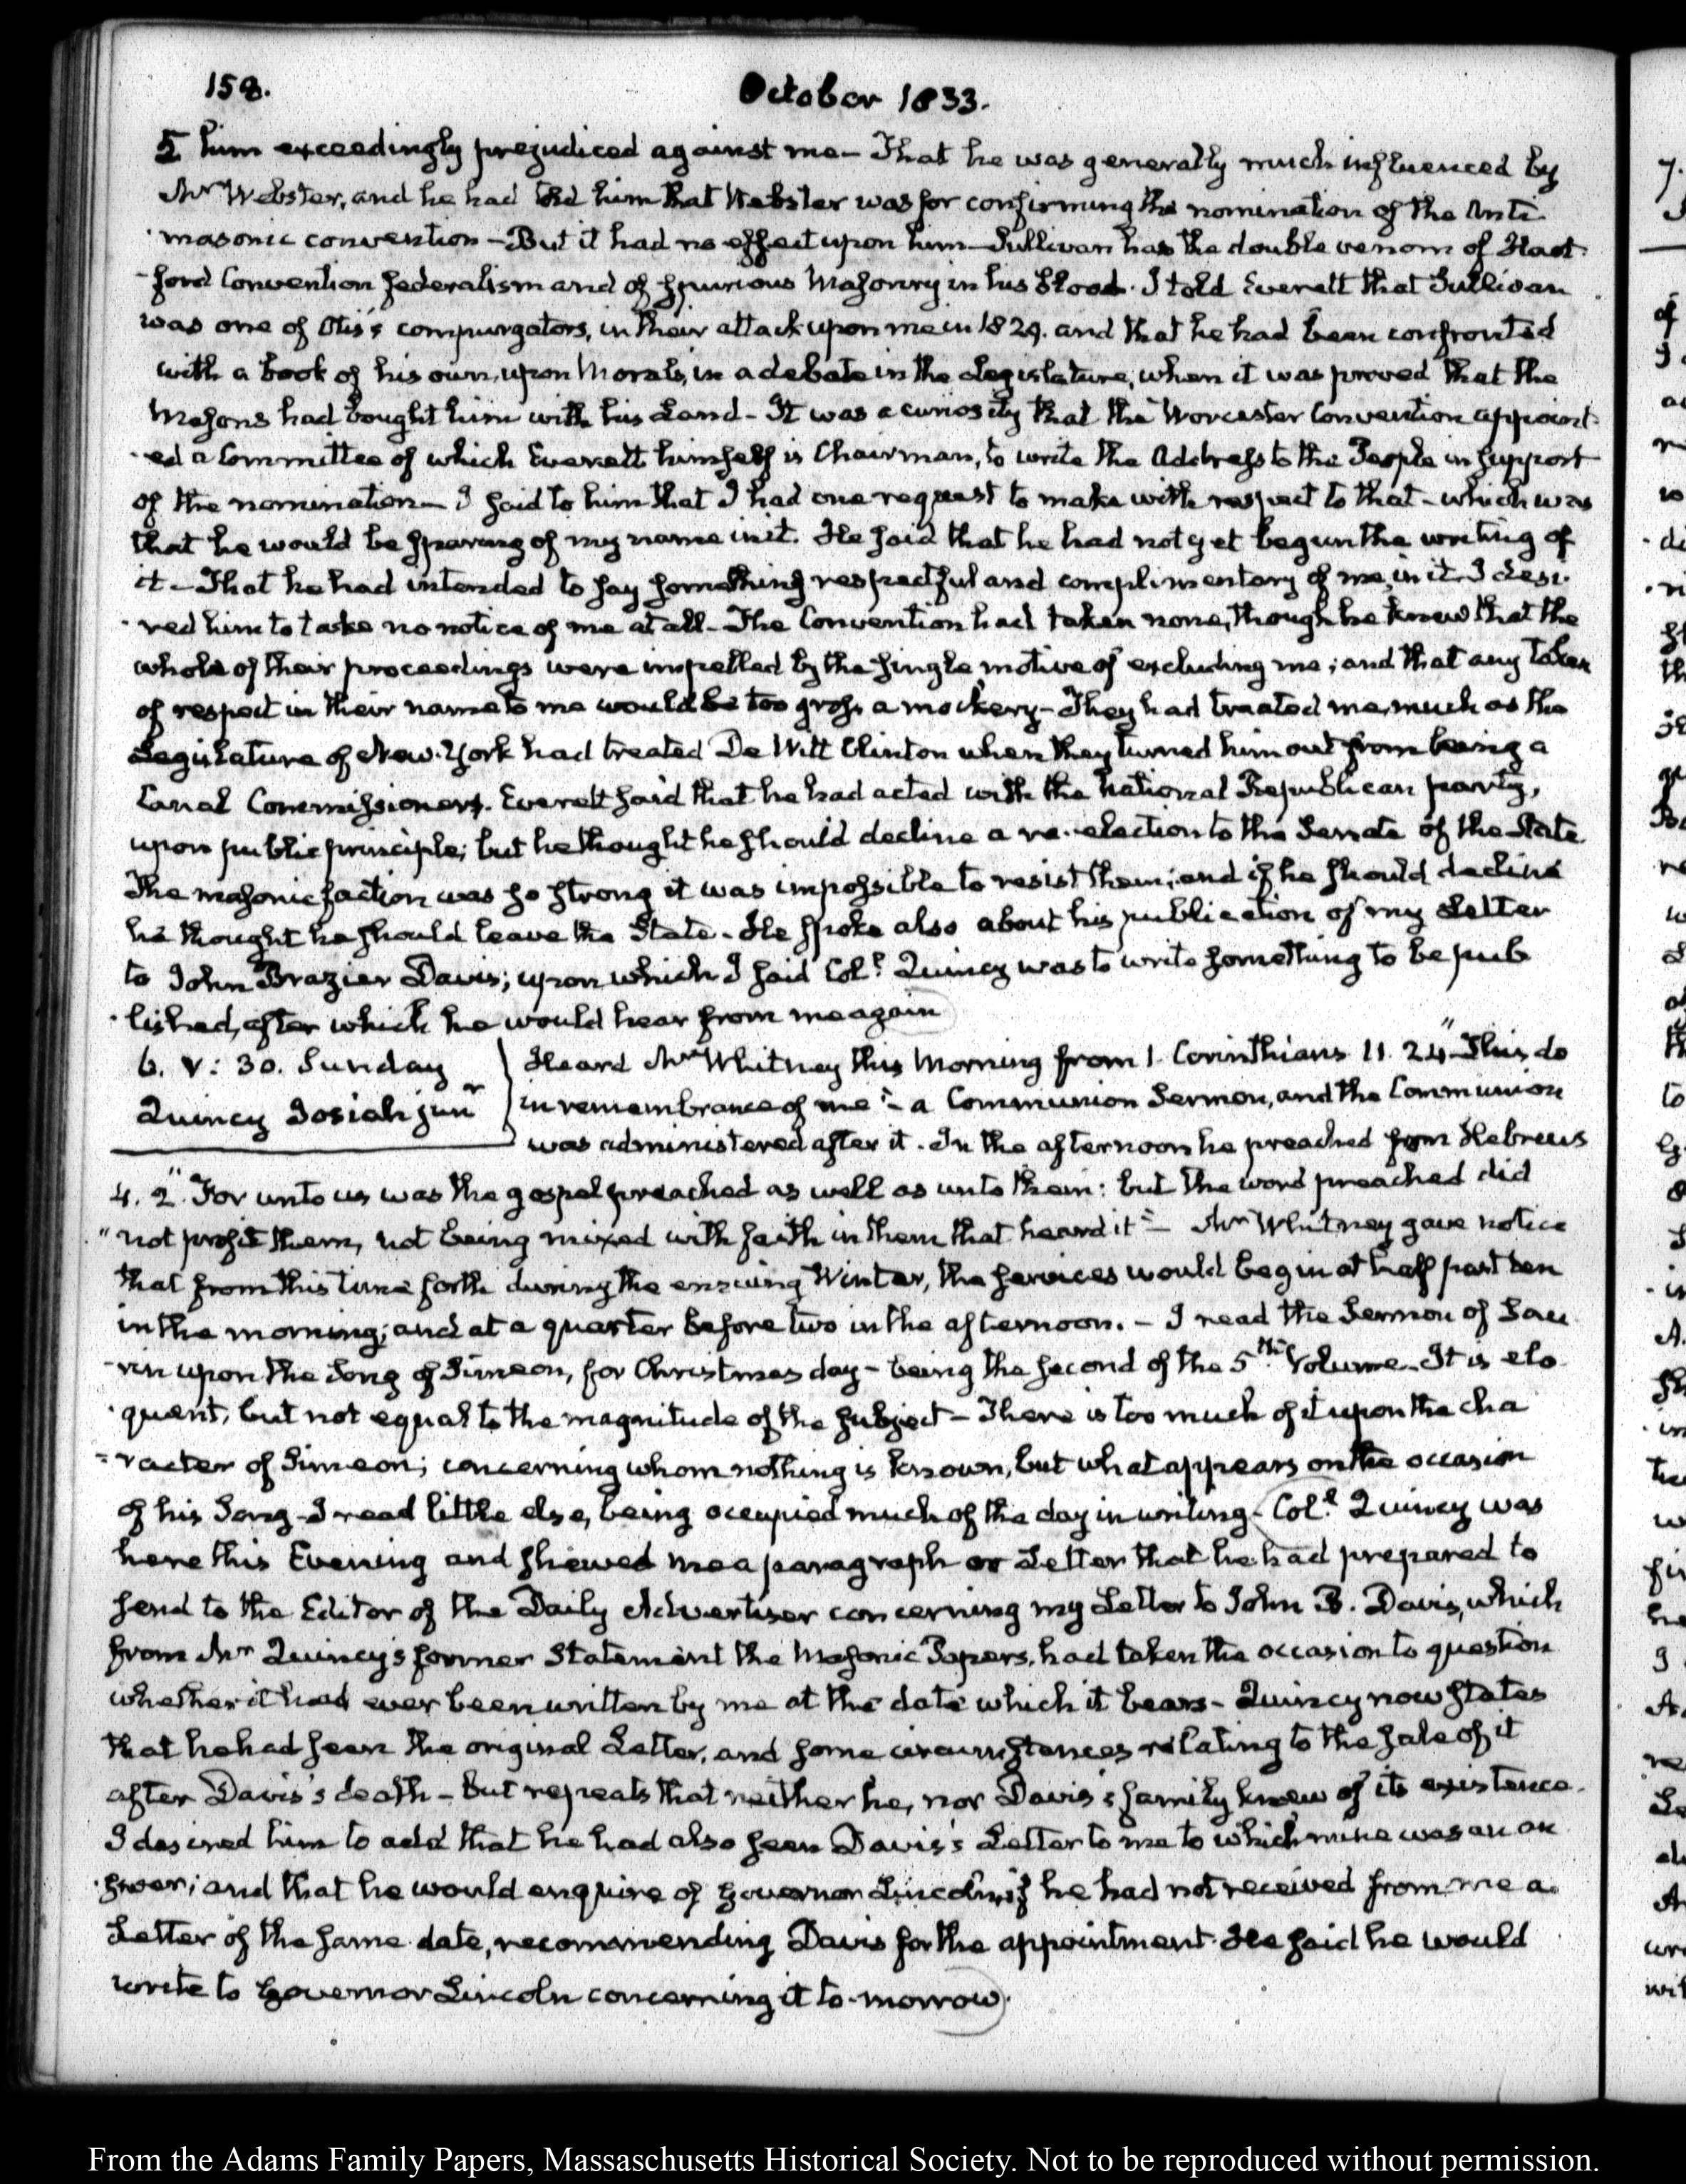 158.
October 1833.
5 him exceedingly prejudiced against me – That he was generally much influenced by
Mr Webster, and he had told him that Webster was for confirming the nomination of the Anti
masonic convention – But it had no effect upon him – Sullivan has the double venom of Hart-
-ford Convention federalism and of spurious Masonry in his blood. I told Everett that Sullivan
was one of Otis's compurgators, in their attack upon me in 1829. and that he had been confronted
with a book of his own, upon Morals, in a debate in the Legislature, when it was proved that the
Masons had bought him with his Land – It was a curiosity that the Worcester Convention appoint-
-ed a Committee of which Everett himself is Chairman, to write the Address to the People in support
of the nomination – I said to him that I had one request to make with respect to that – which was
that he would be sparing of my name in it. He said that he had not yet begun the writing of
it – That he had intended to say something respectful and complimentary of me, in it. I desi-
-red him to take no notice of me at all – The Convention had taken none, though he knew that the
whole of their proceedings were impelled by the single motive of excluding me; and that any token
of respect in their name to me would be too gross a mockery – They had treated me, much as the
Legislature of New-York had treated De Witt Clinton when they turned him out from being a
Canal Commissioner. Everett said that he had acted with the National Republican party,
upon public principle; but he thought he should decline a re-election to the Senate of the State.
The masonic faction was so strong it was impossible to resist them; and if he should decline
he thought he should leave the State – He spoke also about his publication of my Letter
to John Brazier Davis; upon which I said Coll. Quincy was to write something to be pub
-lished, after which he would hear from me again
6. V: 30. Sunday
Quincy Josiah junr
Heard Mr Whitney this Morning from 1. Corinthians 11. 24 "This do
in remembrance of me" – a Communion Sermon, and the Communion
was administered after it. In the afternoon he preached from Hebrews
4. 2. "For unto us was the gospel preached as well as unto them: but the word preached did
"not profit them, not being mixed with faith in them that heard it" – Mr Whitney gave notice
that from this time forth during the ensuing Winter, the services would begin at half past ten
in the morning; and at a quarter before two in the afternoon. – I read the Sermon of Sau
-rin upon the Song of Simeon, for Christmas day – being the second of the 5th. Volume – It is elo
-quent, but not equal to the magnitude of the subject – There is too much of it upon the cha
-racter of Simeon; concerning whom nothing is known, but what appears on the occasion
of his Song – I read little else, being occupied much of the day in writing – Coll. Quincy was
here this Evening and shewed me a paragraph or Letter that he had prepared to
send to the Editor of the Daily Advertiser concerning my Letter to John B. Davis, which
from Mr Quincy's former Statement the Masonic Papers, had taken the occasion to question
whether it had ever been written by me at the date which it bears – Quincy now states
that he had seen the original Letter, and some circumstances relating to the sale of it
after Davis's death – but repeats that neither he, nor Davis's family knew of its existence.
I desired him to add that he had also seen Davis's Letter to me to which mine was an an
-swer; and that he would enquire of Governor Lincoln, if he had not received from me a
Letter of the same date, recommending Davis for the appointment. He said he would
write to Governor Lincoln concerning it to-morrow.
From the Adams Family Papers, Massachusetts Historical Society. Not to be reproduced without permission.